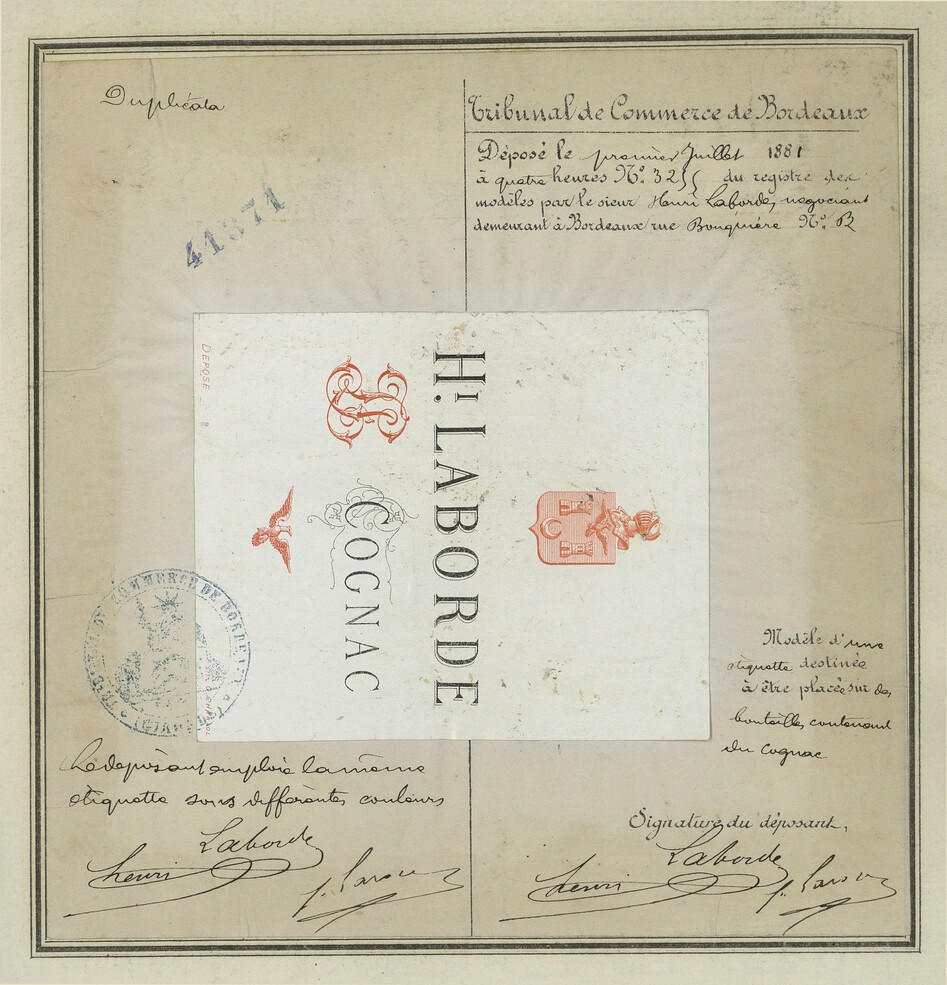 Duplicata
41371
Tribunal de Commerce de Bordeaux
Déposé le premier Juillet 1881
à quatre heures No. 32 du registre des
modèles par le sieur Henri Laborde, négociant
demeurant à Bordeaux rue Bouquière No.
DEPOSE
HI LABORDE
COGNAC
TRIBUNAL DE COMMERCE DE BORDEAUX
(GIRONDE)
Modèle d'une
étiquette destinée
à être placée sur des
bouteilles contenant
du cognac
Le déposant emploie la même
étiquette sous différentes couleurs
Henri Laborde
Signature du déposant,
Henri Laborde